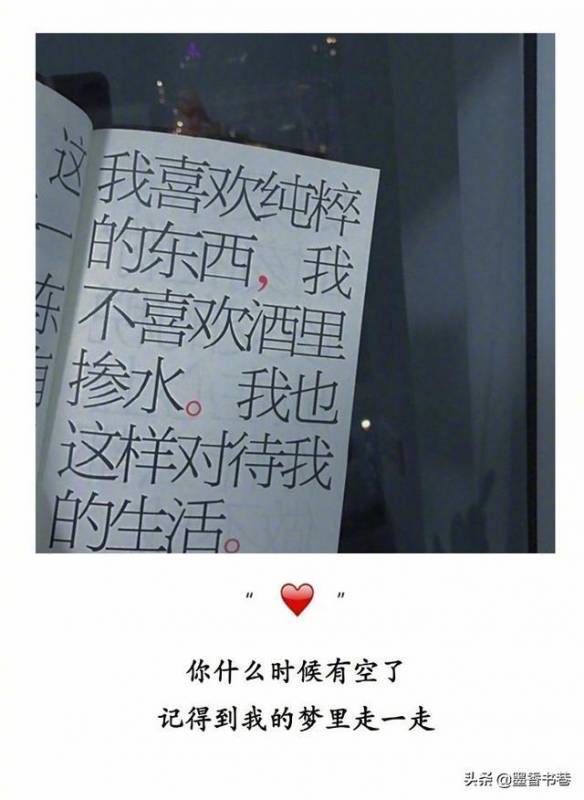 我喜欢纯粹
的东西，我
不喜欢酒里
掺水。我也
这样对待我
的生活。
这
一
“ ❤ ”
你什么时候有空了
记得到我的梦里走一走
头条 @墨香书巷